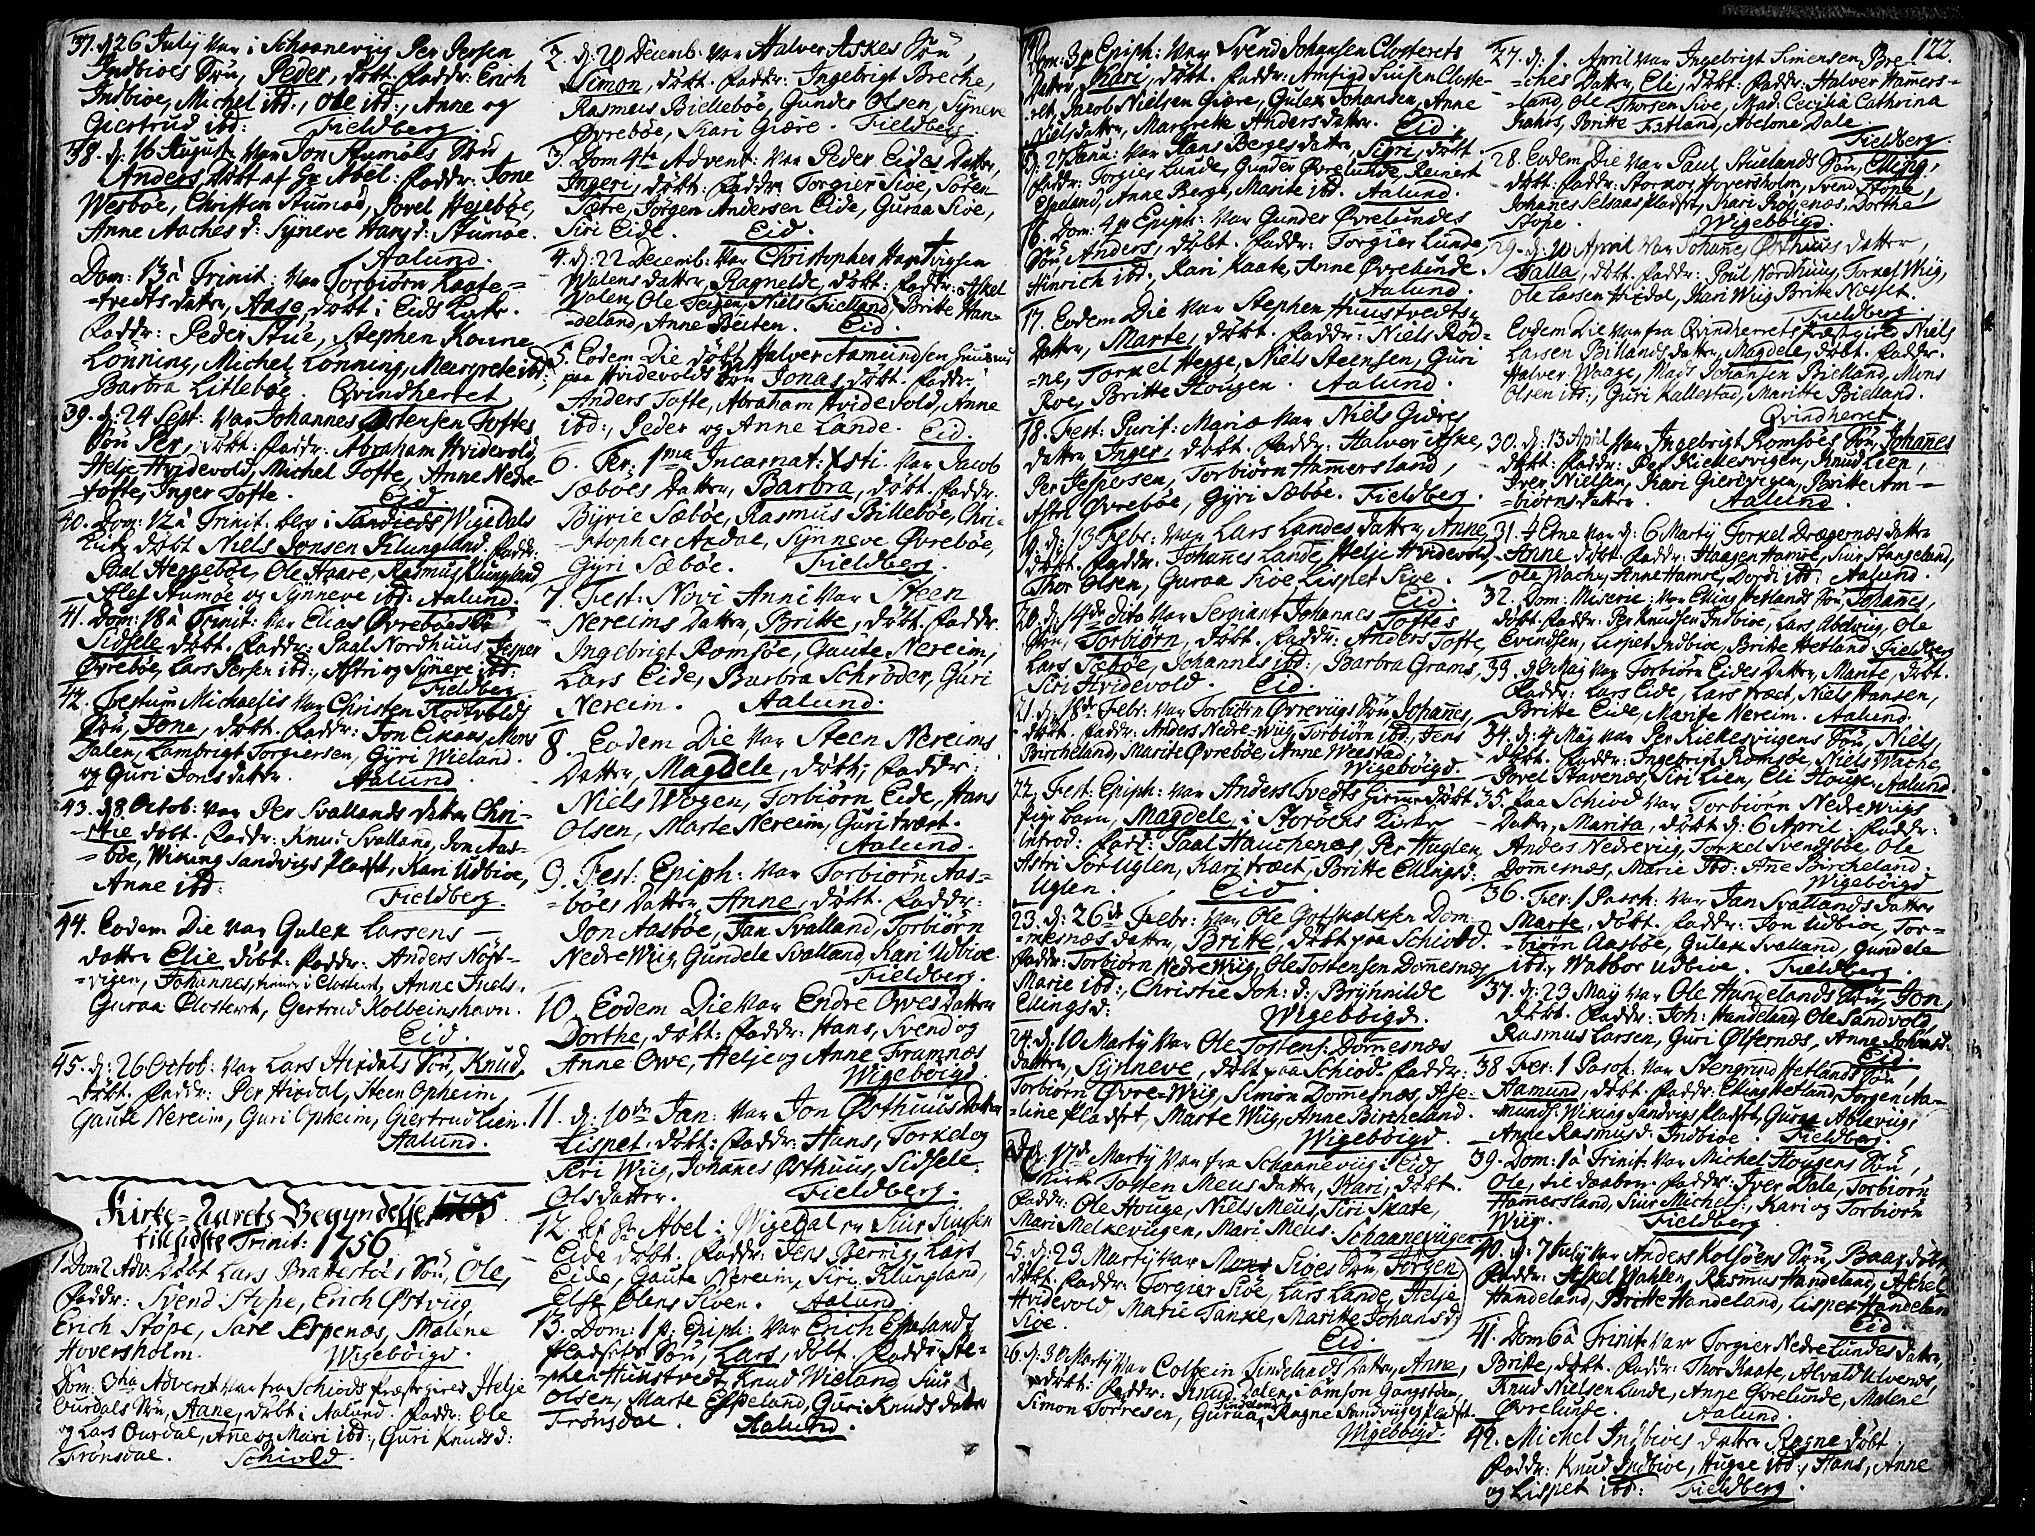 37. d: 26 July var i Schaanevyg Per Persen
Indbioes Søn, Peder, døbt: Faddr: Erich
Indbioe, Michel ibd:, Ole ibd:, Anne og
Giertrud ibd: Fieldberg.
38. d: 16 August. Var Jon Stumoes Søn
Anders døbt af Hr Abel: Faddr: Tone
Wesboe, Christen Stumoe, Jovel Hesebøe,
Anne Aaches d: Synneve Hans d: Stumoe.
Aalund.
Dom: 13 à Trinit: Var Torbiørn Kaate-
-tvedts datter, Aase, døbt i Eids Kirke.
Faddr: Peder Stue, Stephen Konne
Lønning, Michel Lønning, Margrete ibd:
Barbra Litlebøe. Qvindherret
39. d: 24 Sept: Var Johannes Østensen Toftes
Søn Per, døbt: Faddr: Abraham Hvidevold,
Helje Hvidevold, Michel Tofte, Anne Nedre-
-tofte, Inger Tofte. Eid.
40. Dom: 12 à Trinit. blev i Wigedals
Kirke døbt Niels Jonsen Klungland. Faddr:
Paal Heggebøe, Ole Haare, Rasmus Klungland,
Alej Stumoe og Synneve ibd: Aalund.
41. Dom: 18 à Trinit: Var Elias Øvrebøes D.
Sidsele døbt. Faddr: Paal Nordhuus, Jesper
Øvrebøe, Lars Persen ibd:, Astri og Synneve ibd:
Fieldberg.
42. Festum Michaelis Var Christen Rødtvoldts
Søn, Jone, døbt. Faddr: Jon Eikaas, Mons
Dalen, Lambrigt Torgiersen, Gyri Wieland.
og Guri Jons datter. Aalund.
43. d: 8 Octob: Var Per Svallands datter Chri-
-stie døbt. Faddr: Knud Svalland, Jon Aas-
-bøe, Wiking Sandvigs Pladst, Kari Udbioe,
Anne ibd: Fieldberg.
44. Eodem Die Var Gulek Larsens
datter Elie døbt: Faddr: Anders Nøst-
-vigen, Johannes i Closteret, Anne Juels.
Guraa Closteret, Gertrud Kolbeinshavn.
Eid.
45. d: 26 Octob: Var Lars Hixdals Søn, Knud,
døbt. Faddr: Per Hixdal, Steen Opheim,
Gaute Nereim, Guri Opheim, Giertrud Lien.
Aalund.
Kirke-Aarets Begyndelse 1755
til sidste Trinit: 1756
1 Dom 2 Adv: døbt Lars Brattestøes Søn, Ole,
Faddr: Svend Støpe, Erich Østviig,
Erich Støpe, Sare Erpenæs, Malene
Hoversholm. Wigebøigd.
Dom: 3tia Advent Var fra Schiods Præstegield Helje
Ourdals Søn, Aane, døbt i Aalund. Faddr: Ole
og Lars Ourdal, Anne og Mari ibd:, Guri Knuds d:
Trønsdal. Schiold.
2. d: 20 Decemb: Var Halver Askes Søn,
Simon, døbt. Faddr: Ingebrigt Breche,
Rasmus Biellebøe, Gunder Olsen, Synneve
Øvrebøe, Kari Giære. Fieldberg.
3. Dom 4ta Advent: Var Peder Eides Datter,
Ingeri, døbt. Faddr: Torgier Sioe, Soren
Sætre, Jørgen Andersen Eide, Guraa Sioe,
Siri Eide. Eid.
4. d: 22 Decemb: Var Christopher Handvigsen
Walens datter, Ragnelde, døbt: Faddr: Askel
Valen, Ole Teigen, Niels Fielland, Britte Han-
-deland, Anne Beiten. Eid.
5. Eodem Die døbt Halver Aamundsen Huusmd
paa Hvidevolds Søn Jonas døbt. Faddr:
Anders Tofte, Abraham Hvidevold, Anne
ibd:, Peder og Anne Lande. Eid.
6. Fer: 1ma Incarnat: Xsti Var Jacob
Sæbøes Datter, Barbra, døbt. Faddr:
Byrie Sæbøe, Rasmus Billebøe, Chri-
-stopher Axdal, Synneve Øvrebøe,
Gyri Sæbøe. Fieldberg.
7. Fest: Novi Anni Var Steen
Nereims Datter, Britte, døbt. Faddr:
Ingebrigt Romsøe, Gaute Nereim,
Lars Eide, Barbra Schrøder, Guri
Nereim. Aalund.
8. Eodem Die Var Steen Nereims
Datter, Magdele, døbt; Faddr:
Niels Wogen, Torbiørn Eide, Hans
Olsen, Marte Nereim, Guri træet.
Aalund.
9. Fest: Epiph: Var Torbiørn Aas-
-bøes Datter Anne, døbt. Faddr:
Jon Aasbøe, Jan Svalland, Torbiørn
Nedre Wiig, Gundele Svalland, Kari Udbioe
Fieldberg.
10. Eodem Die Var Endre Owes Datter
Dorthe, døbt: Faddr: Hans, Svend og
Anne Owe, Helje og Anne Framnæs
Wigebøigd.
11. d: 10de Jan: Var Jon Østhuus Datter
Lispet, døbt: Faddr: Hans, Torkel og
Siri Wiig, Johannes Østhuus, Sidsele
Olsdatter. Fieldberg.
12. Er Hr Abel i Wigedal Siur Siursen
Eide døbt. Faddr: Jens Nerrig, Lars
Eide, Gaute Nereim, Siri Klungland,
Else Olens Siven. Aalund.
13. Dom: 1 p: Epiph: Var Erich Esselands
Pladsets Søn, Lars, døbt. Faddr: Ste-
-phen Huustvedt, Knud Wieland, Siur
Olsen, Marte Esseland, Guri Knuds datter
Trønsdal. Aalund.
Dom: 3 p Epiph: Var Svend Johansen Closterets
Datter, Kari, døbt. Faddr: Amfind Siursen Closte-
-ret, Jacob Nielsen Giære, Gulek Johansen, Anne
Niels datter, Margrette Anders datter. Eid.
d: 27 Janu: Var Hans Berges datter, Sigri, døbt.
Faddr: Torgies Lunde, Gunder Øvrelunde, Reinert
Espeland, Anne Berge, Marite ibd. Aalund.
16. Dom: 4 p Epiph: Var Gunder Øvrelundes
Søn Anders, døbt. Faddr: Torgier Lunde,
Hinrich ibd:, Kari Kaate, Anne Øvrelunde.
Aalund.
17. Eodem Die Var Stephen Huustvedts
Datter, Marte, døbt. Faddr: Niels Rød-
-ne, Torkel Hegge, Niels Steensen, Guri
Roe, Britte Hougen. Aalund.
18. Fest: Purif: Mariæ Var Niels Giæres
datter Inger, døbt. Faddr: Halver Aske,
Per Jespersen, Torbiørn Hammersland,
Astri Øvrebøe, Gyri Sæbøe. Fieldberg.
19. d: 13 Febr: Var Lars Landes datter, Anne,
døbt. Faddr: Johannes Lande, Helje Hvidevold,
Thor Olsen, Guraa Sioe Lispet Sioe.
Eid.
20. d: 14de Dito Var Sergiant Johannes Toftes
Søn, Torbiørn, døbt. Faddr: Anders Tofte,
Lars Sæbøe, Johannes ibd:, Barbra Grams,
Siri Hvidevold. Eid.
21. d: 18de Febr: Var Torbiørn Øvreviigs Søn Johannes,
døbt. Faddr: Anders Nedre-Wiig, Torbiørn ibd:, Jens
Bircheland, Marite Øvrebøe, Anne Weestad
Wigebøigd.
22. Fest: Epiph: Var Anders Tvedts hiemmedøbt
Pige barn, Magdele, i Storøens Kirke
introd: Fad: Paal Hauchenæs, Per Huglen,
Astri Tor Uglen, Kari træet, Britte Ellings d:
Uglen. Eid.
23. d: 26de Febr: Var Ole Gotskalksen Dom-
-mesnæs datter, Britte, døbt paa Schiold.
Faddr: Torbiørn Nedre Wiig, Ole Tostensen Dommesnæs
Marie ibd:, Christie Joh: d:, Brynnilde
Ellings d: Wigebøigd.
24. d: 10 Marty Var Ole Tostens: Dommesnæs
datter, Synneve, døbt paa Schiod. Faddr:
Torbiørn Øvre-Wiig, Simon Dommesnæs, Ase-
-line Pladset, Marte Wiig, Anne Bircheland.
Wigebøigd.
d: 17de Marty Var fra Schaaneviig i Eids
Kirke Tosten Meus datter, Mari, døbt.
Faddr: Ole Houge, Niels Meus, Siri Skate,
Mari Melkevigen, Mari Meus. Schaaneviigen
25. d: 23 Marty Var Sioes Søn, Jørgen,
døbt. Faddr: Torgier Siøe, Lars Lande, Helje
Hvidevold Marie Tanke, Maritte Johans d:
Sioe. Eid.
26. d: 30 Marty Var Colbein Sindelands datter, Anne,
døbt. Faddr: Knud Dalen, Samson Gangstøe,
Simon Torresen, Guraa Sindeland, Ragne Sandvigs Pladst.
Wigebøigd.
122.
27. d: 9. April Var Ingebrigt Simensen Bre-
-ches Datter, Eli, døbt. Faddr: Halver Hamers-
-land, Ole Thorsen Sioe, Mad: Cecilia Cathrina
Frahrs, Britte Fatland, Abelone Dale.
Fieldberg.
28. Eodem Die Var Paul Stuelands Søn, Elling,
døbt. Faddr: Storkor Hoversholm, Svend Støpe,
Johannes Pladset, Kari Røgenæs, Dorthe
Støpe. Wigebøigd.
29. d: 10 April Var Johannes Østhuus datter,
Salla, døbt. Faddr: Poul Nordhuus, Torkel Wiig,
Ole Larsen Hixdal, Kari Wiig Britte Nesset.
Fieldberg.
Eodem Die Var fra Qvindherrets Præstgield Niels
Larsen Billands datter, Magdele, døbt. Faddr.
Halver Waage, Mads Johansen Bielland, Mons
Olsen ibd:, Guri Kallestad, Maritte Bielland.
Qvindherret.
30. d: 13 April Var Ingebrigt Romsøes Søn, Johannes
døbt. Faddr: Per Kiellesvigen, Knud Lien,
Iver Nielsen, Kari Gierivigen, Britte Am-
-biørns datter. Aalund.
31. i Etne Var d: 6 Marty Torkel Dragernæs datter
Jonne døbt. Faddr: Haagen Hamre, Siur Stangeland,
Ole Wache, Anne Hamre, Bordi ibd: Aalund.
32. Dom: Miseric: Var Elling Hetlands Søn, Johannes,
døbt. Faddr: Per Knudsen Indbioe, Lars Abelviig, Ole
Evindsen, Lispet Indbioe, Britte Hetland Fieldberg
33. d: May Var Torbiørn Eides Datter, Marite, døbt.
Faddr: Lars Eide, Lars træet, Niels Hansen,
Britte Eide, Marite Nereim. Aalund.
34. d: 4 May Var Per Kiellesviigens Søn, Niels,
døbt. Faddr: Ingebrigt Romsøe, Niels Wache,
Jovel Stavenæs, Siri Lien, Eli Houge. Aalund.
35. Paa Schiod Var Torbiørn Nedre Wiigs
Datter, Marita, døbt d: 6 April. Faddr:
Anders Nedrevig, Torkel Svendsbøe, Ole
Dommernæs, Marie ibd: Anne Bircheland.
Wigebøigd
36. Fer: 1 Pasch: Var Jan Svallands Datter
Marte, døbt. Faddr: Jon Udbioe, Tor-
-biørn Aasbøe, Gulek Svalland, Gundele
ibd., Walbor Udbioe. Fieldberg.
37. d: 23 May Var Ole Handelands Søn, Jon,
døbt. Faddr: Joh: Handeland Ole Sandvold,
Rasmus Larsen, Guri Ølfernæs, Anne Johns d:
Eid.
38 Fer: 1 Pasch: Var Stengrund Hetlands Søn,
Aamund, døbt. Faddr: Elling Hetland, Jørgen Aa-
-munds: Wiking Sandvigs Pladst, Guraa Ableviig,
Anne Rasmus d: Indbioe. Fieldberg.
39. Dom: 1 à Trinit. Var Michel Hougens Søn,
Ole, til daaben. Faddr: Iver Dale, Torbiørn
Hammersland, Siur Michels:, Kari og Torbiørn
Wiig. Fieldberg
40. d: 7 July Var Anders Kolsøens Søn, Baar døbt,
Faddr: Askel Vahlen, Rasmus Handeland, Askel
Handeland, Britte Handeland, Lispet Handeland
Eid.
41. Dom 6 à Trinit. Var Torgier Nedre Lundes datter,
Britte, døbt. Faddr: Thor Kaate, Alvald Ulvenes,
Knud Nielsen Lunde, Anne Øvrelunde, Malene
Øvrelunde. Aalund.
42. Michel Indbioes datter Ragne døbt.
Faddr: Knud Indbioe, Hugne ibd:, Hans, Anne
og Lispet ibd: Fieldberg.